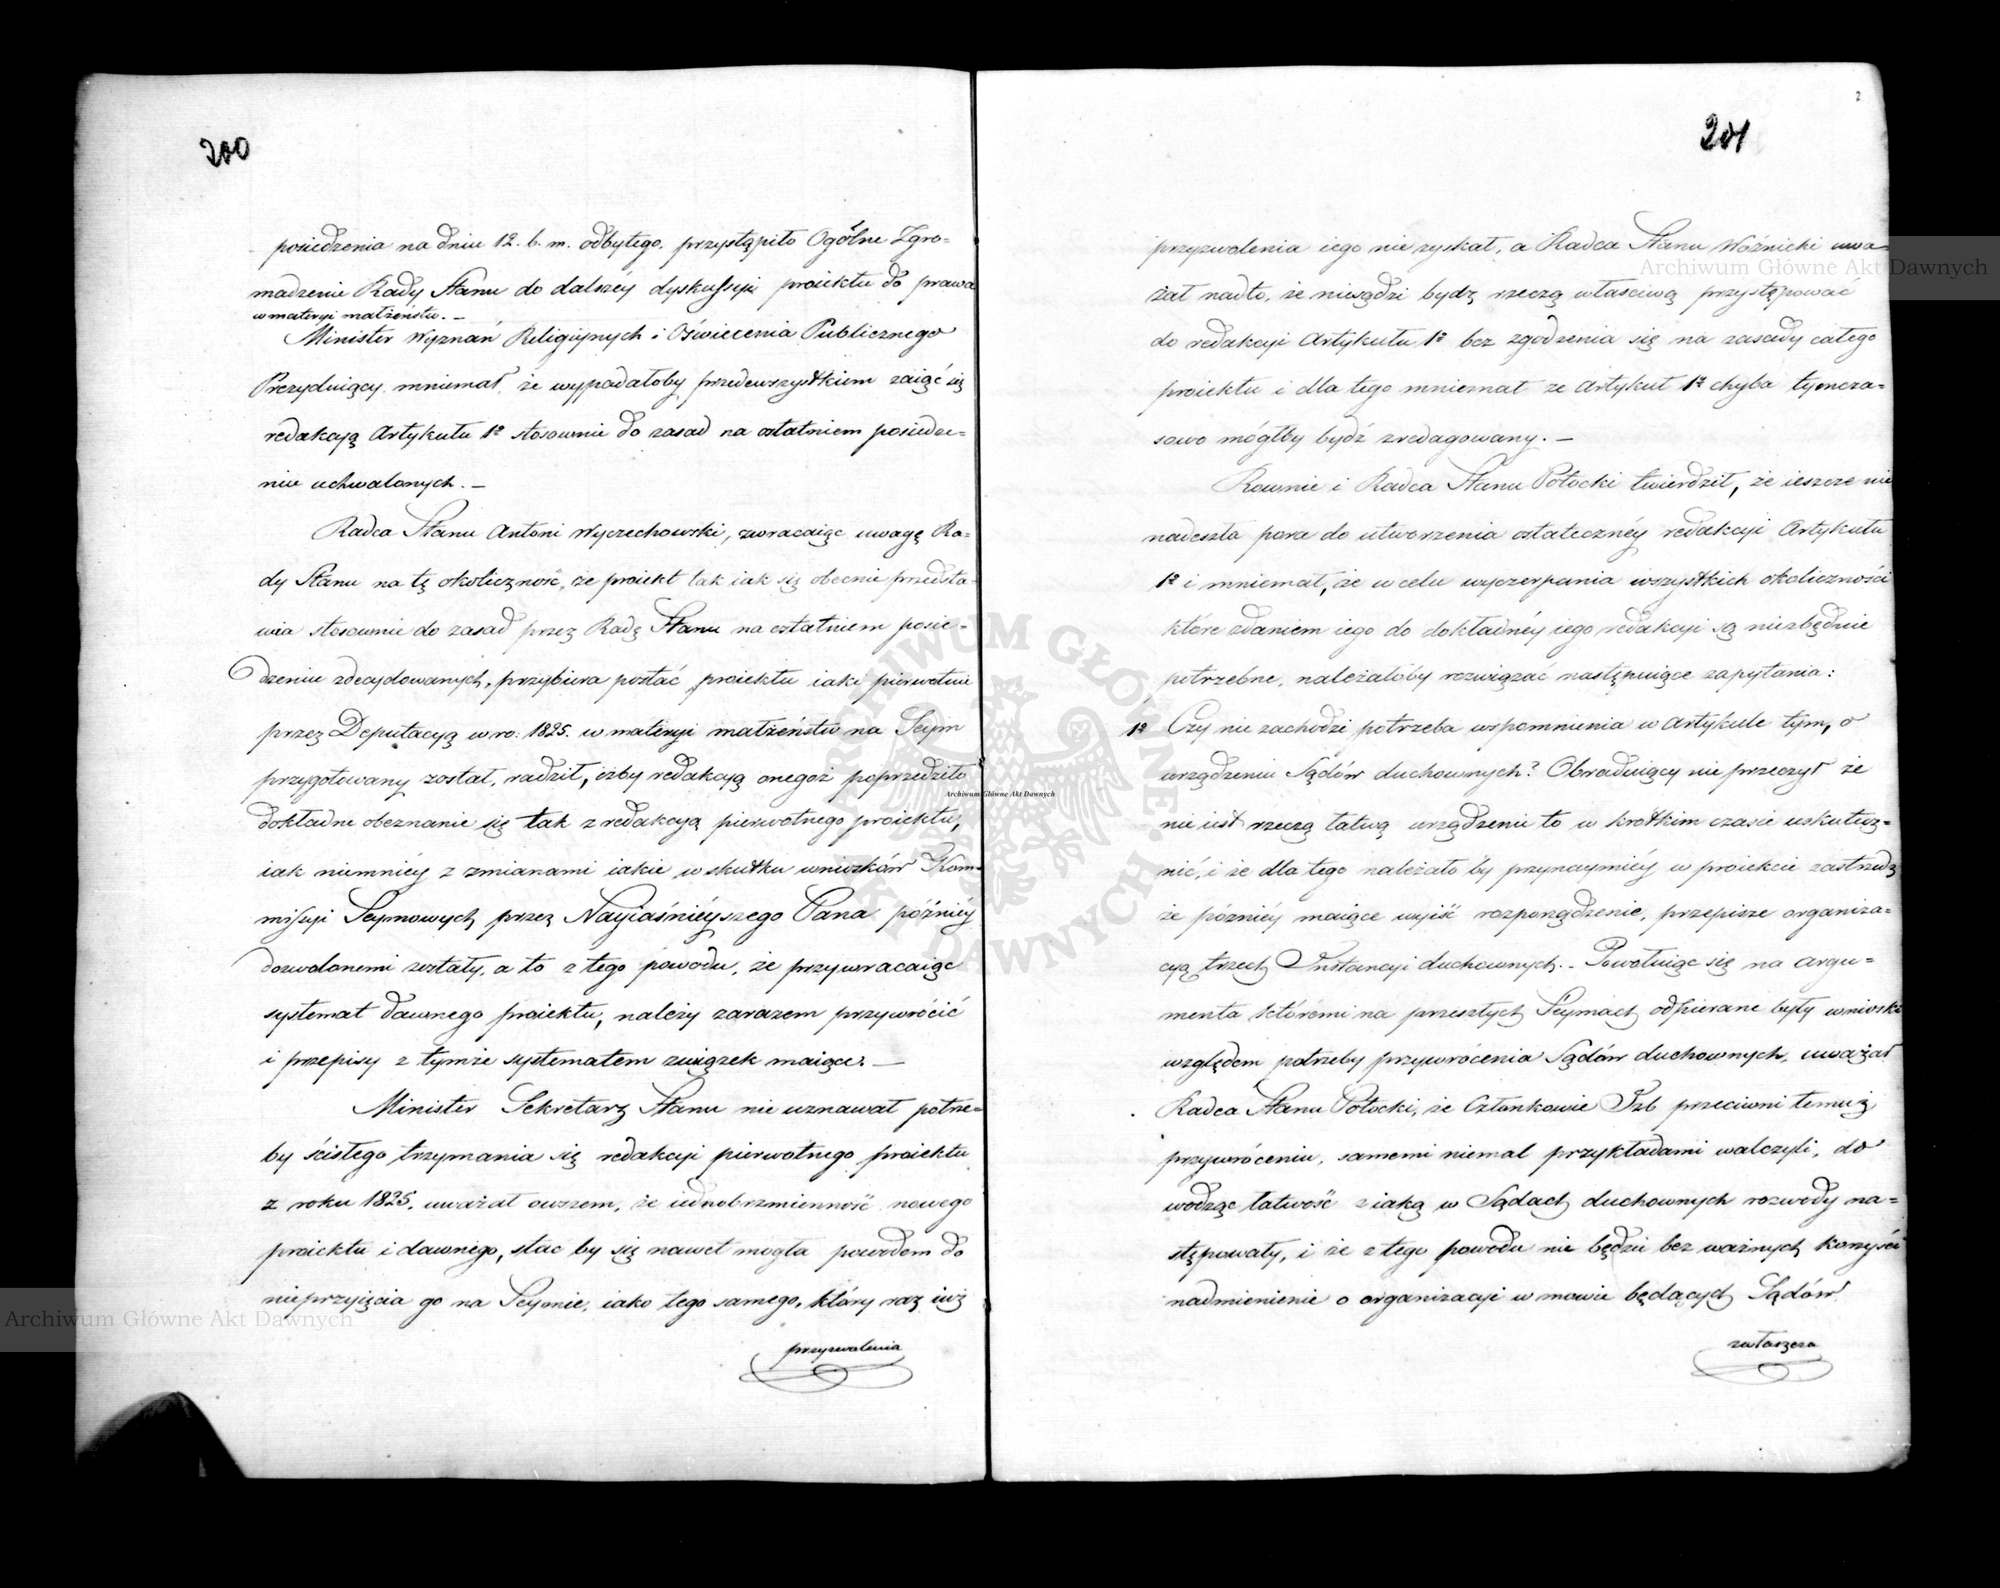 200
posiedzenia na dniu 12. b. m. odbytego, przystąpiło Ogólne Zgro-
madzenie Rady Stanu do dalszéy dyskussyi proiektu do prawa
w materyi małżeństw. —
Minister Wyznań Religiynych i Oświecenia Publicznego
Prezyduiący mniemał że wypadałoby przedewszystkiem zaiąć się
redakcyą Artykułu 1º stosownie do zasad na ostatniem posiedze-
niu uchwalonych. —
Radca Stanu Antoni Wyczechowski, zwracaiąc uwagę Ra-
dy Stanu na tę okoliczność, że proiekt tak iak się obecnie przedsta-
wia stosownie do zasad przez Radę Stanu na ostatniem posie-
dzeniu zdecydowanych, przybiera postać proiektu iaki pierwotnie
przez Deputacyą w ro: 1825. w materyi małżeństw na Seym
przygotowany został, radził, iżby redakcyą onegoż poprzedziło
dokładne obeznanie się tak z redakcyą pierwotnego proiektu,
iak niemniéy z zmianami iakie w skutku wniosków Kom-
missyi Seymowych przez Nayiaśniéyszego Pana późniéy
dozwolonemi zostały, a to z tego powodu, że przywracaiąc
systemat dawnego proiektu, należy zarazem przywrócić
i przepisy z tymże systematem związek maiące. —
Minister Sekretarz Stanu nie uznawał potrze-
by ścisłego trzymania się redakcyi pierwotnego proiektu
z roku 1825. uważał owszem, że iednobrzmienność nowego
proiektu i dawnego, stac by się nawet mogła powodem do
nieprzyięcia go na Seymie, iako tego samego, który raz iuż
przyzwolenia
201
przyzwolenia iego nie zyskał, a Radca Stanu Woźnicki uwa-
żał nadto, że niesądzi bydź rzeczą właściwą przystępować
do redakcyi Artykułu 1º bez zgodzenia się na zasady całego
proiektu i dla tego mniemał ze Artykuł 1º chyba tymcza-
sowo mógłby bydź zredagowany. —
Rownie i Radca Stanu Potocki twierdził, że ieszcze nie
nadeszła pora do utworzenia ostatecznéy redakcyi Artykułu
1º i mniemał, że w celu wyczerpania wszystkich okoliczności
które zdaniem iego do dokładnéy iego redakcyi są niezbędnie
potrzebne, należałoby rozwiązać następuiące zapytania:
1º Czy nie zachodzi potrzeba wspomnienia w Artykule tym, o
urządzeniu Sądów duchownych? Obraduiący nie przeczył że
nie iest rzeczą łatwą urządzenie to w krótkim czasie uskutecz-
nić, i że dla tego należało by przynaymniéy w proiekcie zastrzedz
że późniéy maiące wyiść rozporządzenie, przepisze organiza-
cyą trzech Instancyi duchownych. – Powołuiąc się na argu-
menta któremi na przeszłych Seymach odpierane były wnioski
względem potrzeby przywrócenia Sądów duchownych, uważał
Radca Stanu Potocki, że Członkowie Izb przeciwni temuż
przywróceniu, samemi niemal przykładami walczyli, do
wodząc łatwość z iaką w Sądach duchownych rozwody na-
stępowały, i że z tego powodu nie będzie bez ważnych korzyści
nadmienienie o organizacyi w mowie będących Sądów
zwłaszcza
Archiwum Główne Akt Dawnych
Archiwum Główne Akt Dawnych
Archiwum Główne Akt Dawnych
ARCHIWUM GŁÓWNE AKT DAWNYCH